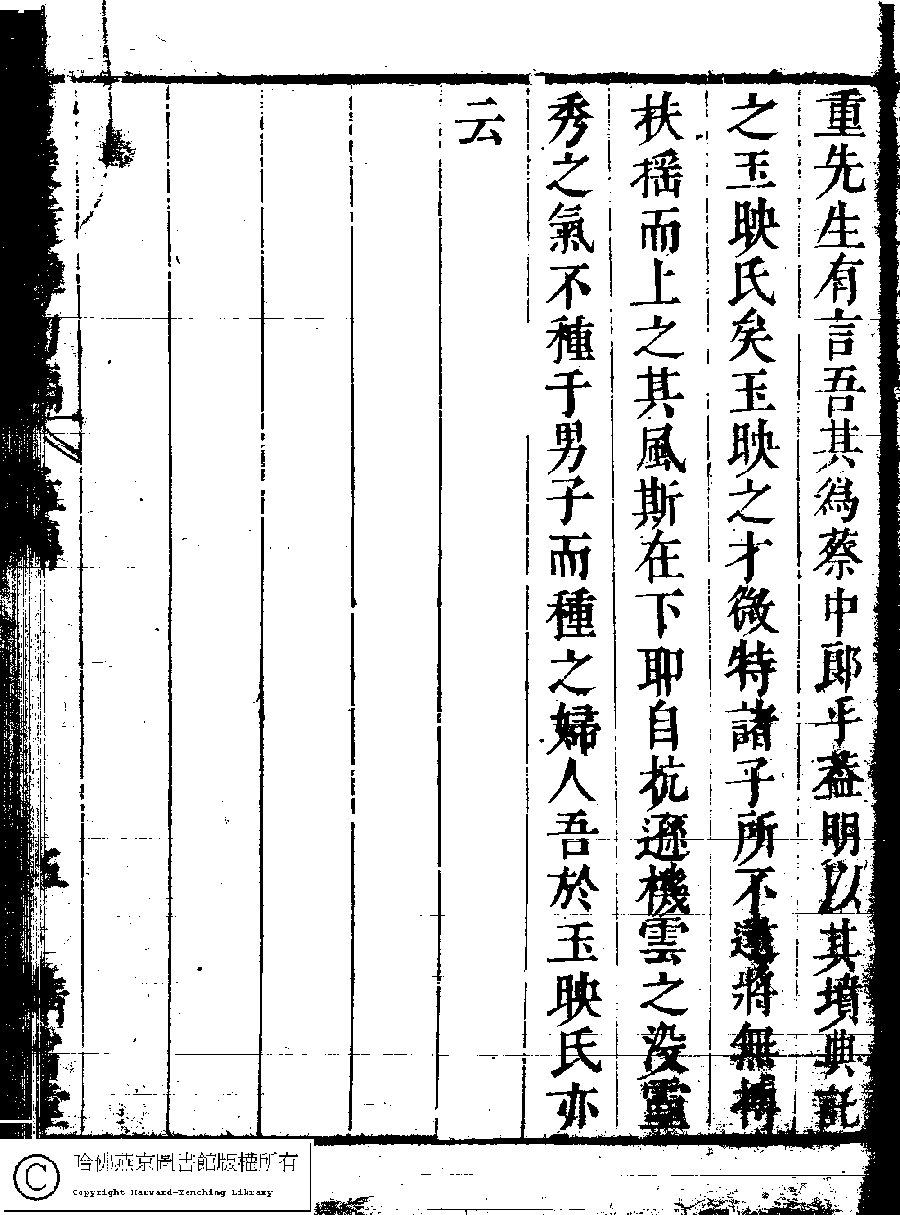 重先生有言吾其為蔡中郎乎葢明以其墳典託
之玉映氏矣玉映之才微特諸子所不逮將無摶
扶揺而上之其風斯在下耶自抗遜機雲之没靈
秀之氣不種于男子而種之婦人吾於玉映氏亦
云
哈佛燕京圖書館版權所有
Copyright Harvard-Yenching Library